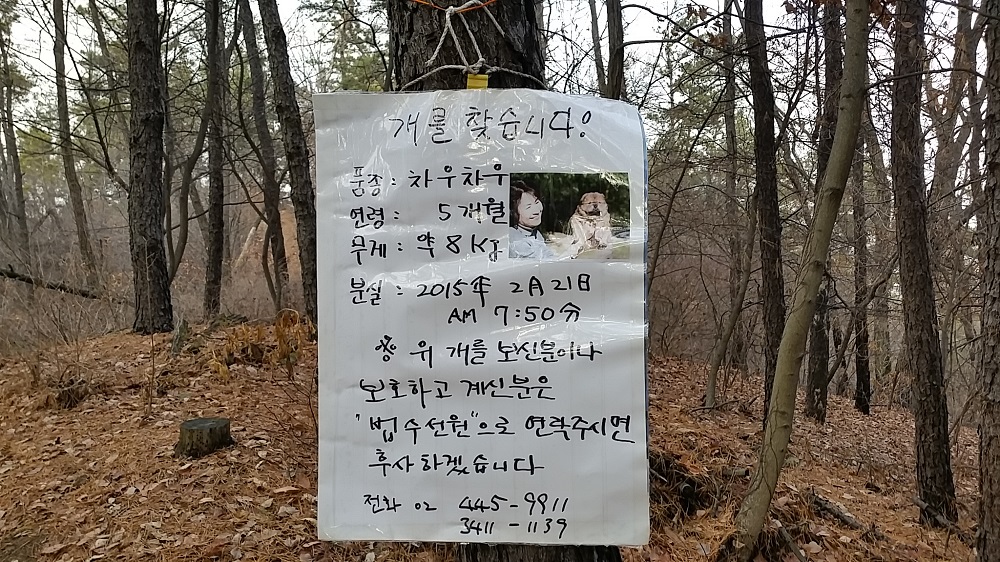 개를 찾습니다!
품종 : 차우차우
연령 : 5개월
무게 : 약 8 Kg
분실 : 2015年 2月 21日
AM 7:50分
위 개를 보신분이나
보호하고 계신분은
"법수선원"으로 연락주시면
후사하겠습니다
전화 02 445-9911
3411-1139